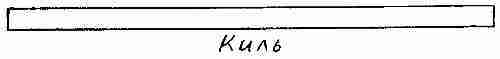 Киль